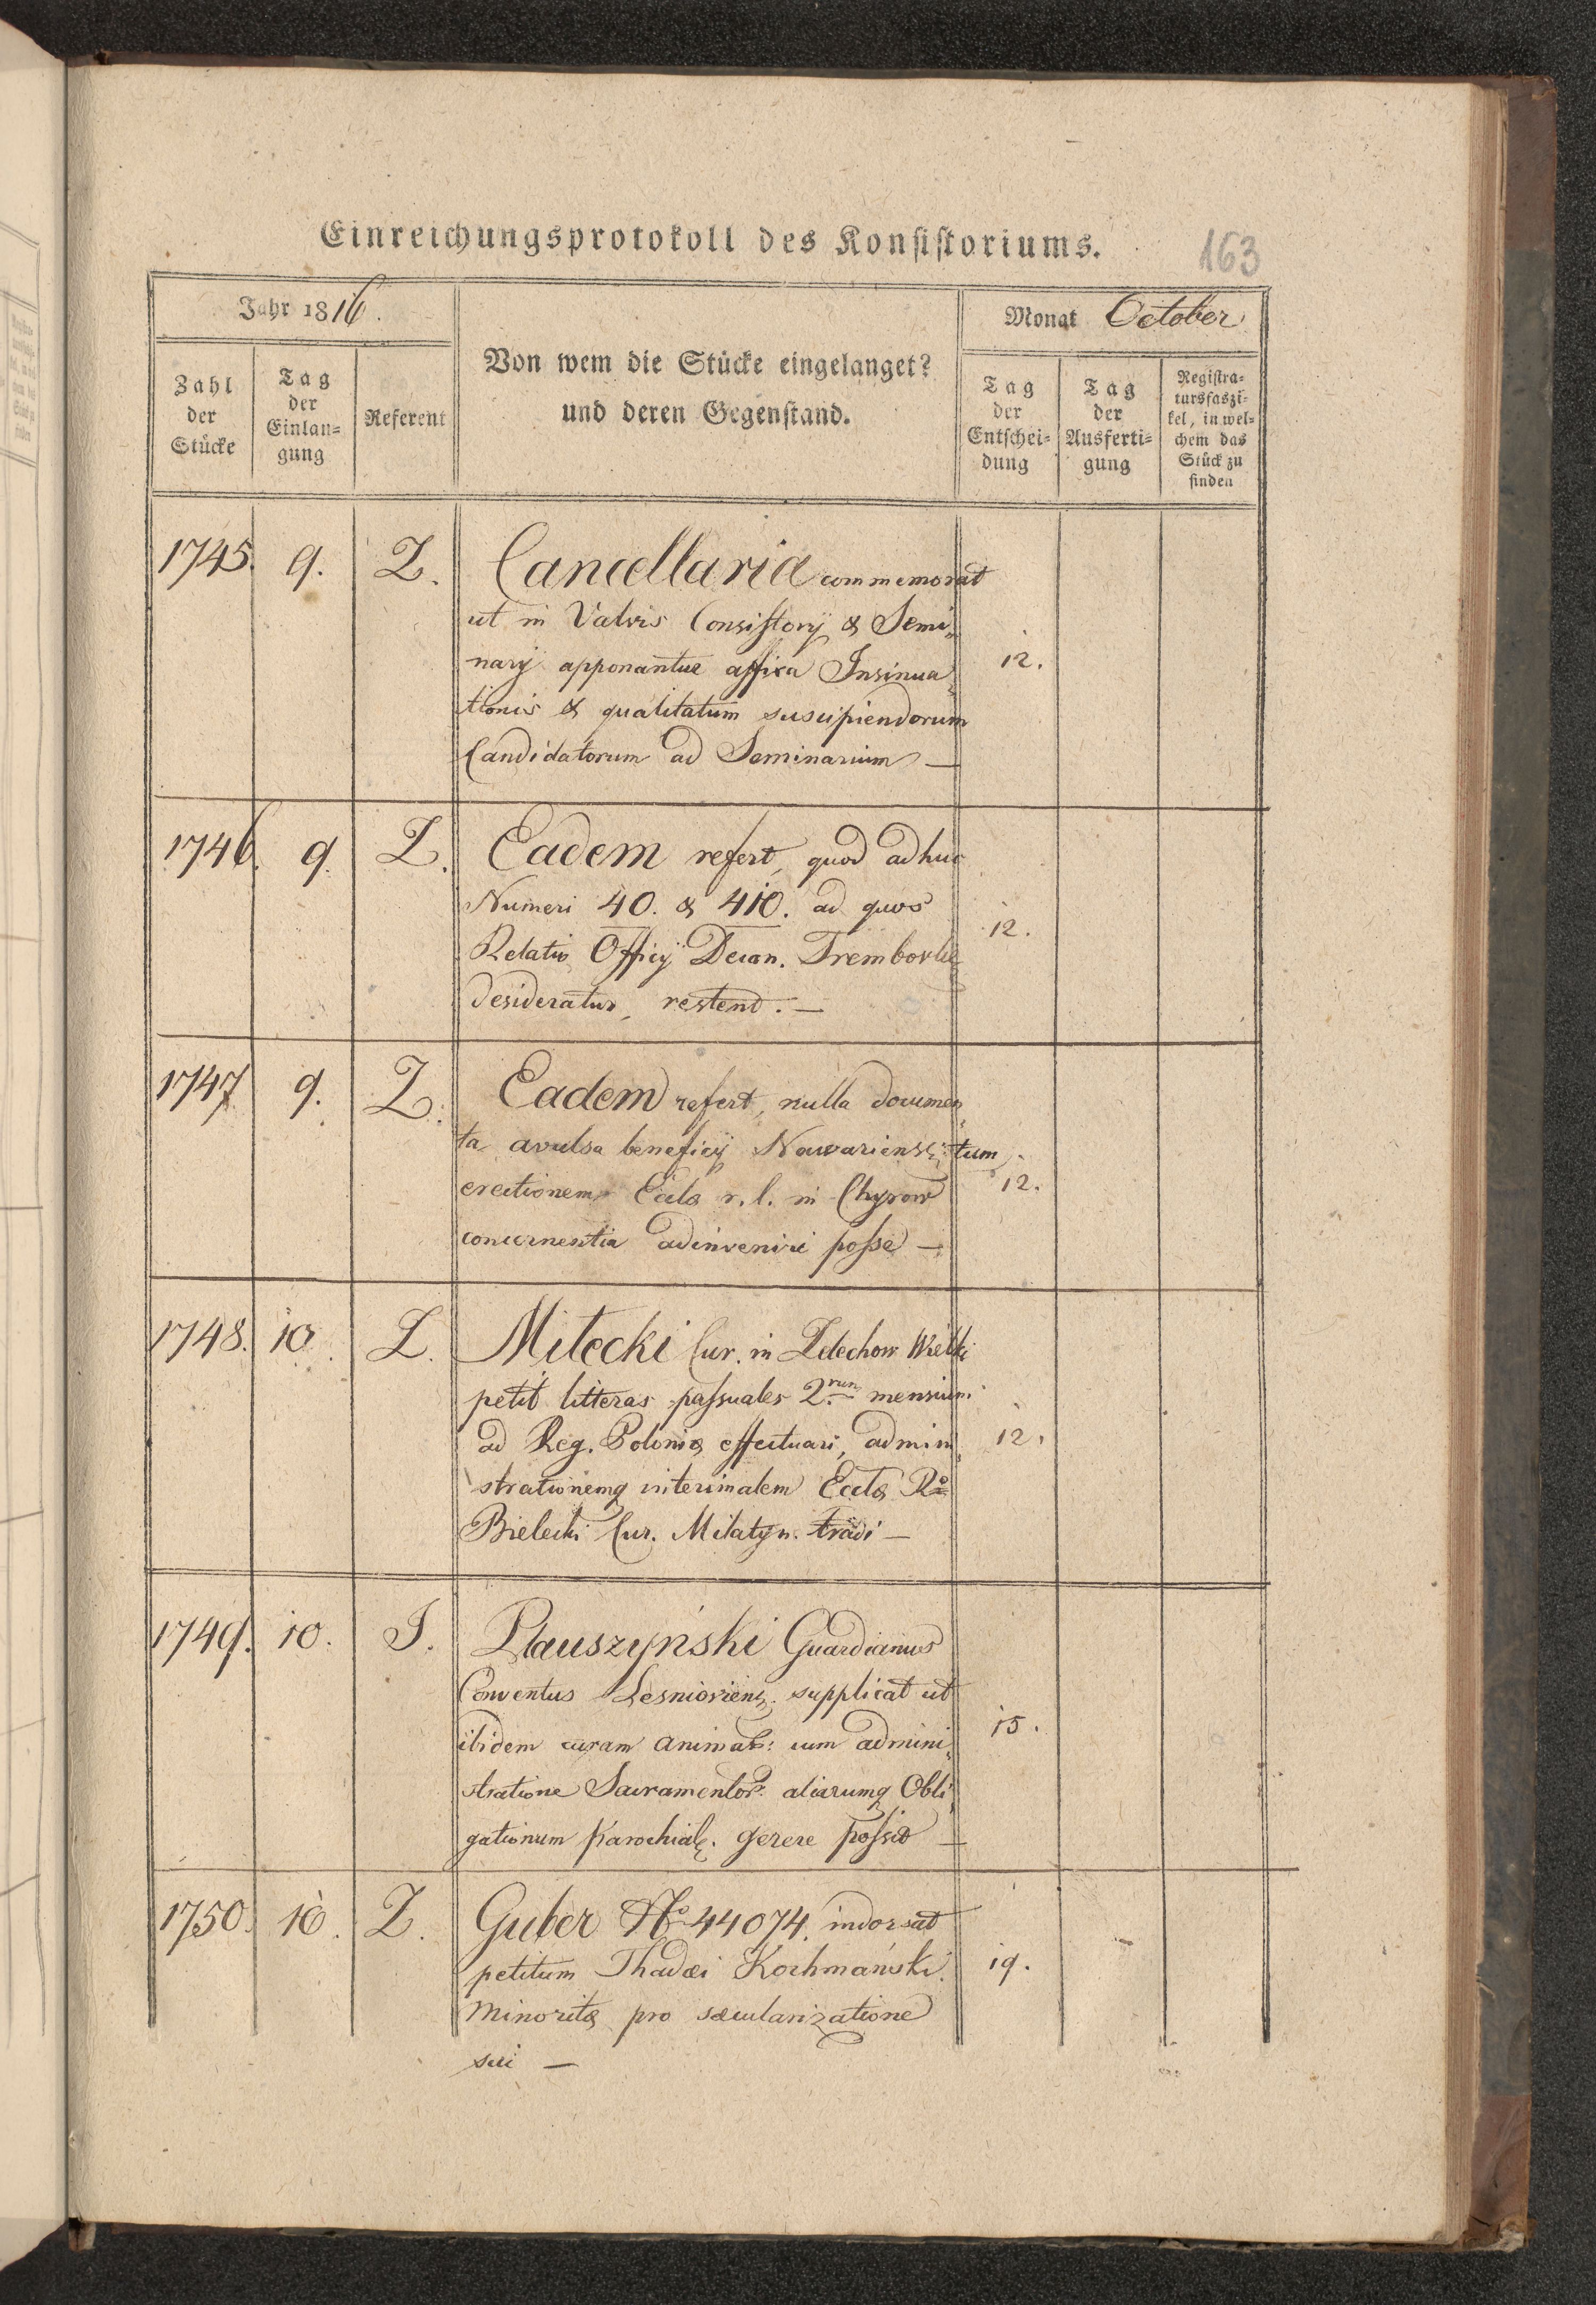 Einreichungsprotokoll des Konsistoriums.
163
Jahr 1816.
Von wem die Stücke eingelanget?
und deren Gegenstand.
Monat October
Zahl
der
Stücke
Tag
der
Einlan=
gung
Referent
Tag
der
Entschei=
dung
Tag
der
Ausferti=
gung
Registra=
tursfaszi=
kel, in wel=
chem das
Stück zu
finden
1745. 9. Z. Cancellaria commemorat
ut in Valvis Consistorÿ & Semi=
narÿ apponantur affixa Insinua=
tionis & qualitatum suscipiendorum
Candidatorum ad Seminarium —
12.
1746. 9. Z. Eadem refert, quod adhuc
Numeri 40. & 410. ad quos
Relatio Officÿ Decan. Trembovle
desideratur, restent. —
12.
1747 9. Z. Eadem refert, nulla documen=
ta avulsa beneficÿ Nawariens. tum
erectionem Eccla r. l. in Chyrow
concernentia adinveniri posse —
12.
1748. 10. Z. Mitecki Cur. in Zelechow Wielki
petit litteras passuales 2.rum mensium
ad Reg. Poloniæ effectuari, admini=
strationemq interimalem Eccla Rdo
Bielecki Cur. Milatyn. tradi —
12.
1749. 10. J. Plauszyński Guardianus
Conventus Lesnioviens. supplicat ut
ibidem curam animar: cum admini=
stratione Sacramentor: aliarumq Obli=
gationum Parochial. gerere possit —
15.
1750. 10. Z. Guber No 44074. indorsat
petitum Thadæi Kochmański
Minoritæ pro sæcularizatione
sui —
19.